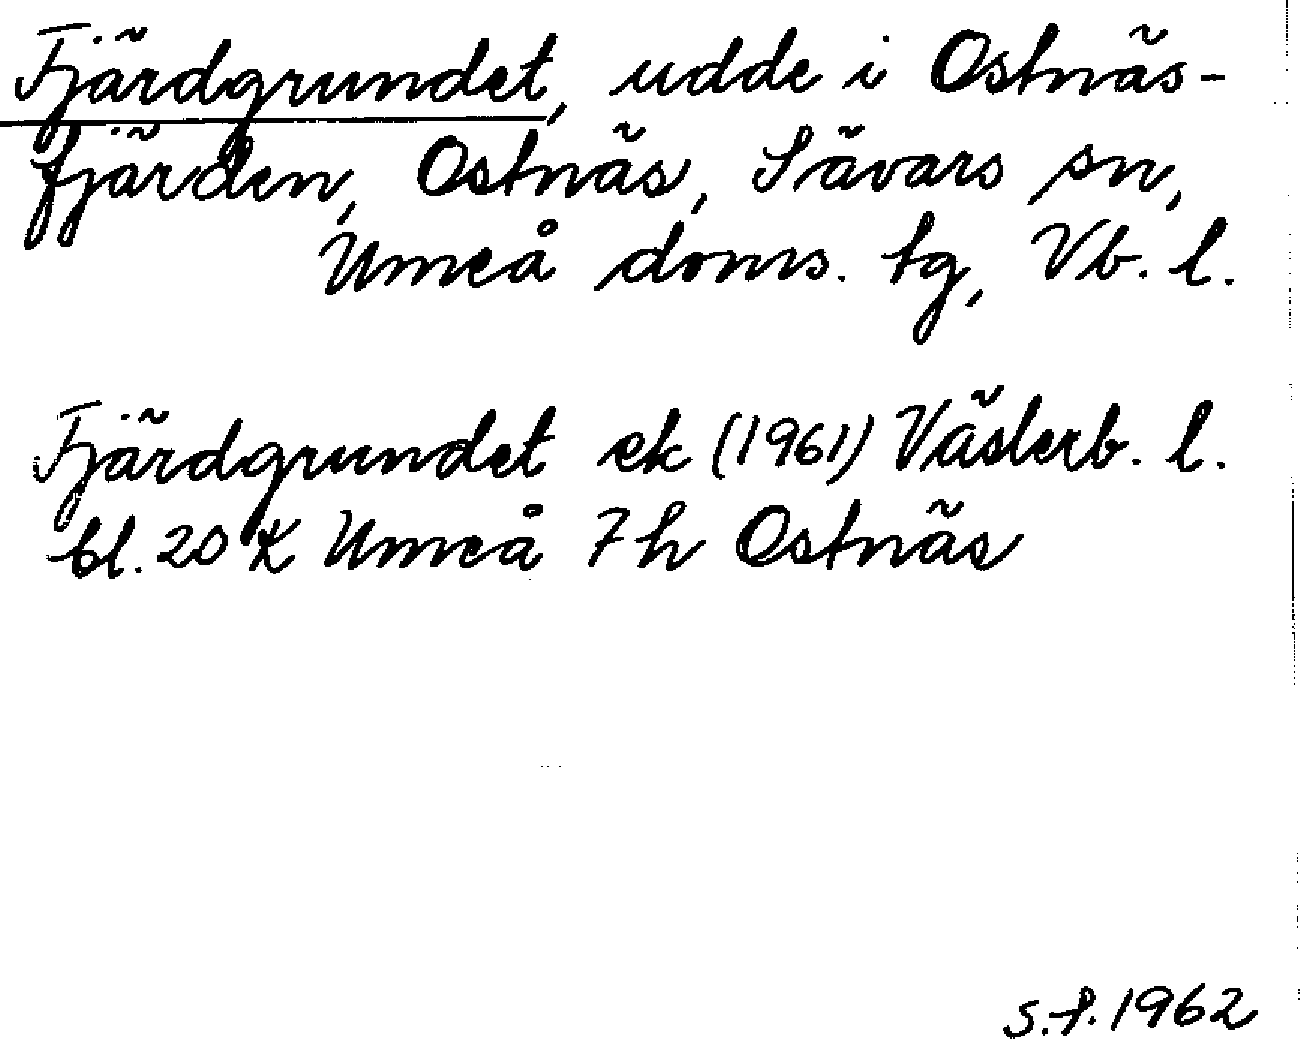 Fjärdgrundet, udde i Ostnäs-
fjärden, Ostnäs, Sävars sn,
Umeå doms. tg, Vb. l.
Fjärdgrundet ek (1961) Västerb. l.
bl. 20 K Umeå 7h Ostnäs
S.F. 1962